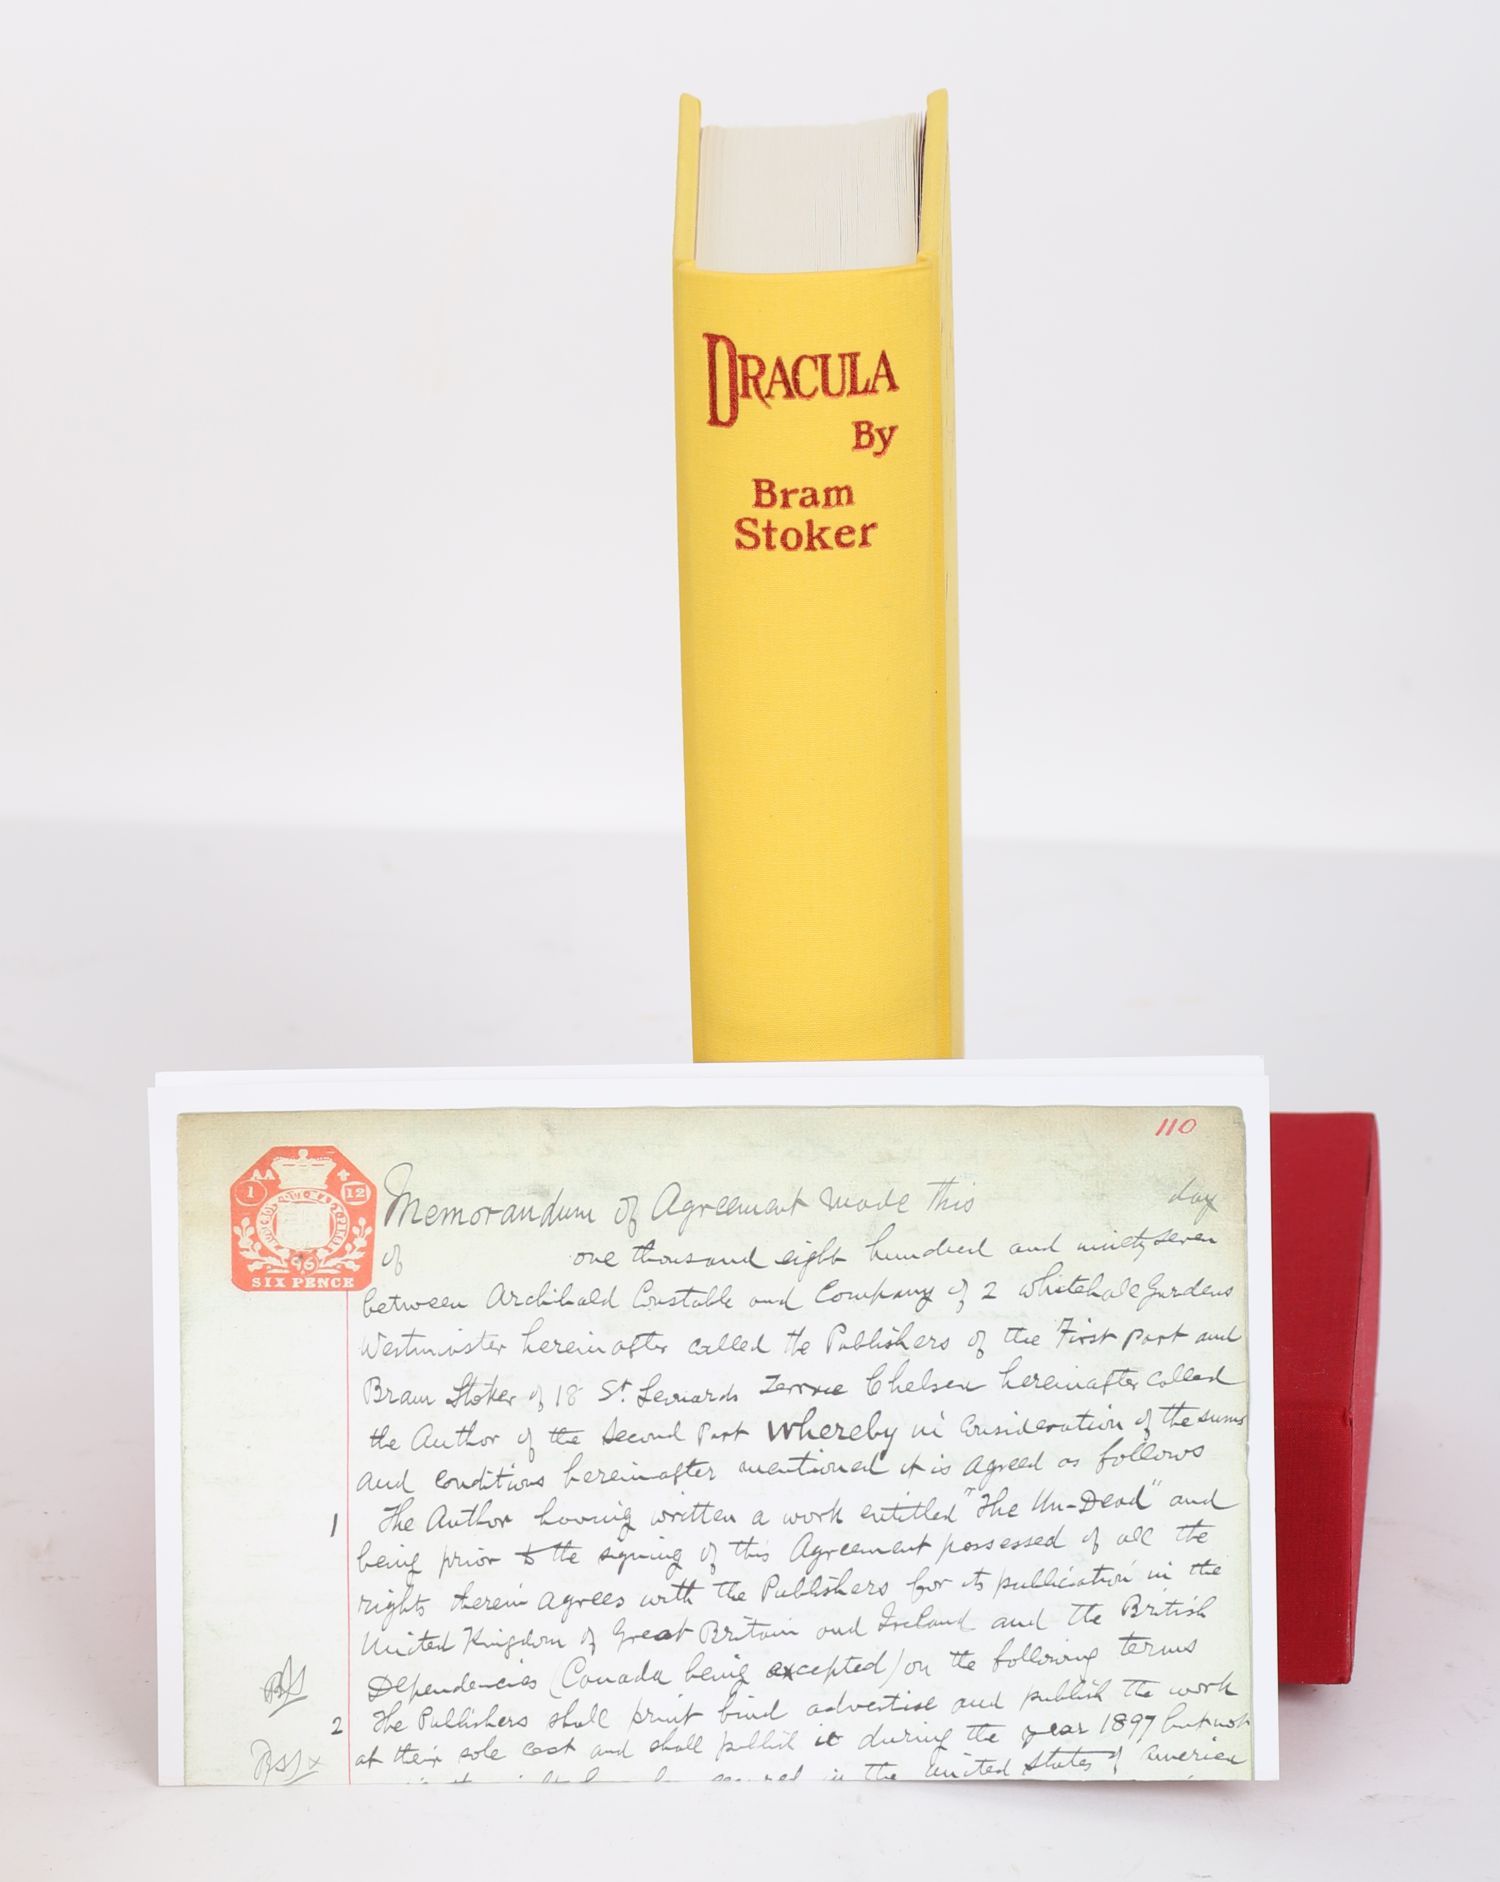 DRACULA
By
Bram
Stoker
110
AA
1
12
96
SIX PENCE
Memorandum of Agreement made this day
of one thousand eight hundred and ninety seven
between Archibald Constable and Company of 2 Whitehall Gardens
Westminster hereinafter called the Publishers of the First Part and
Bram Stoker of 18 St. Leonards Terrace Chelsea hereinafter called
the Author of the Second Part Whereby in Consideration of the sums
and conditions hereinafter mentioned it is agreed as follows
1 The Author having written a work entitled "The Un-Dead" and
being prior to the signing of this Agreement possessed of all the
rights therein agrees with the Publishers for its publication in the
United Kingdom of Great Britain and Ireland and the British
Dependencies (Canada being excepted) on the following terms
BS
2 The Publishers shall print bind advertise and publish the work
at their sole cost and shall publish it during the year 1897 but not
in the United States of America